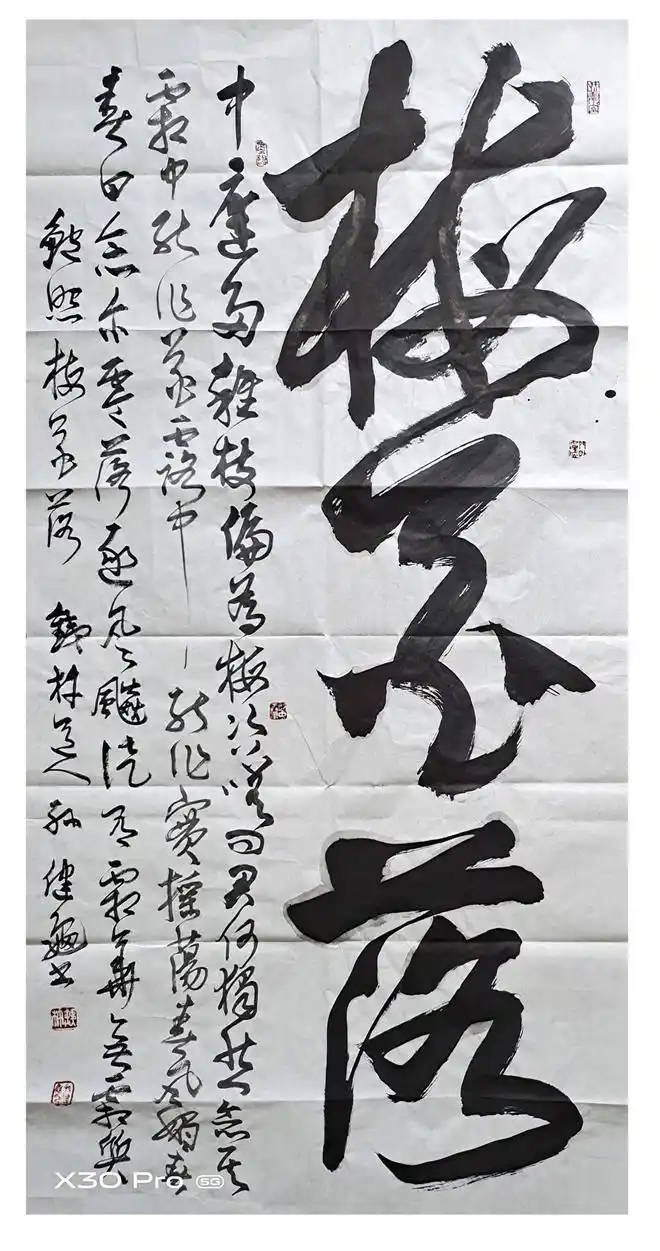 梅花落
中庭多雜樹偏為梅咨嗟問君何獨然念其
霜中能作花露中能作實搖蕩春風媚春
春日念尔零落逐風飈徒有霜華無霜質
鮑照梅花落 道人 孫健 书
X30 Pro 5G